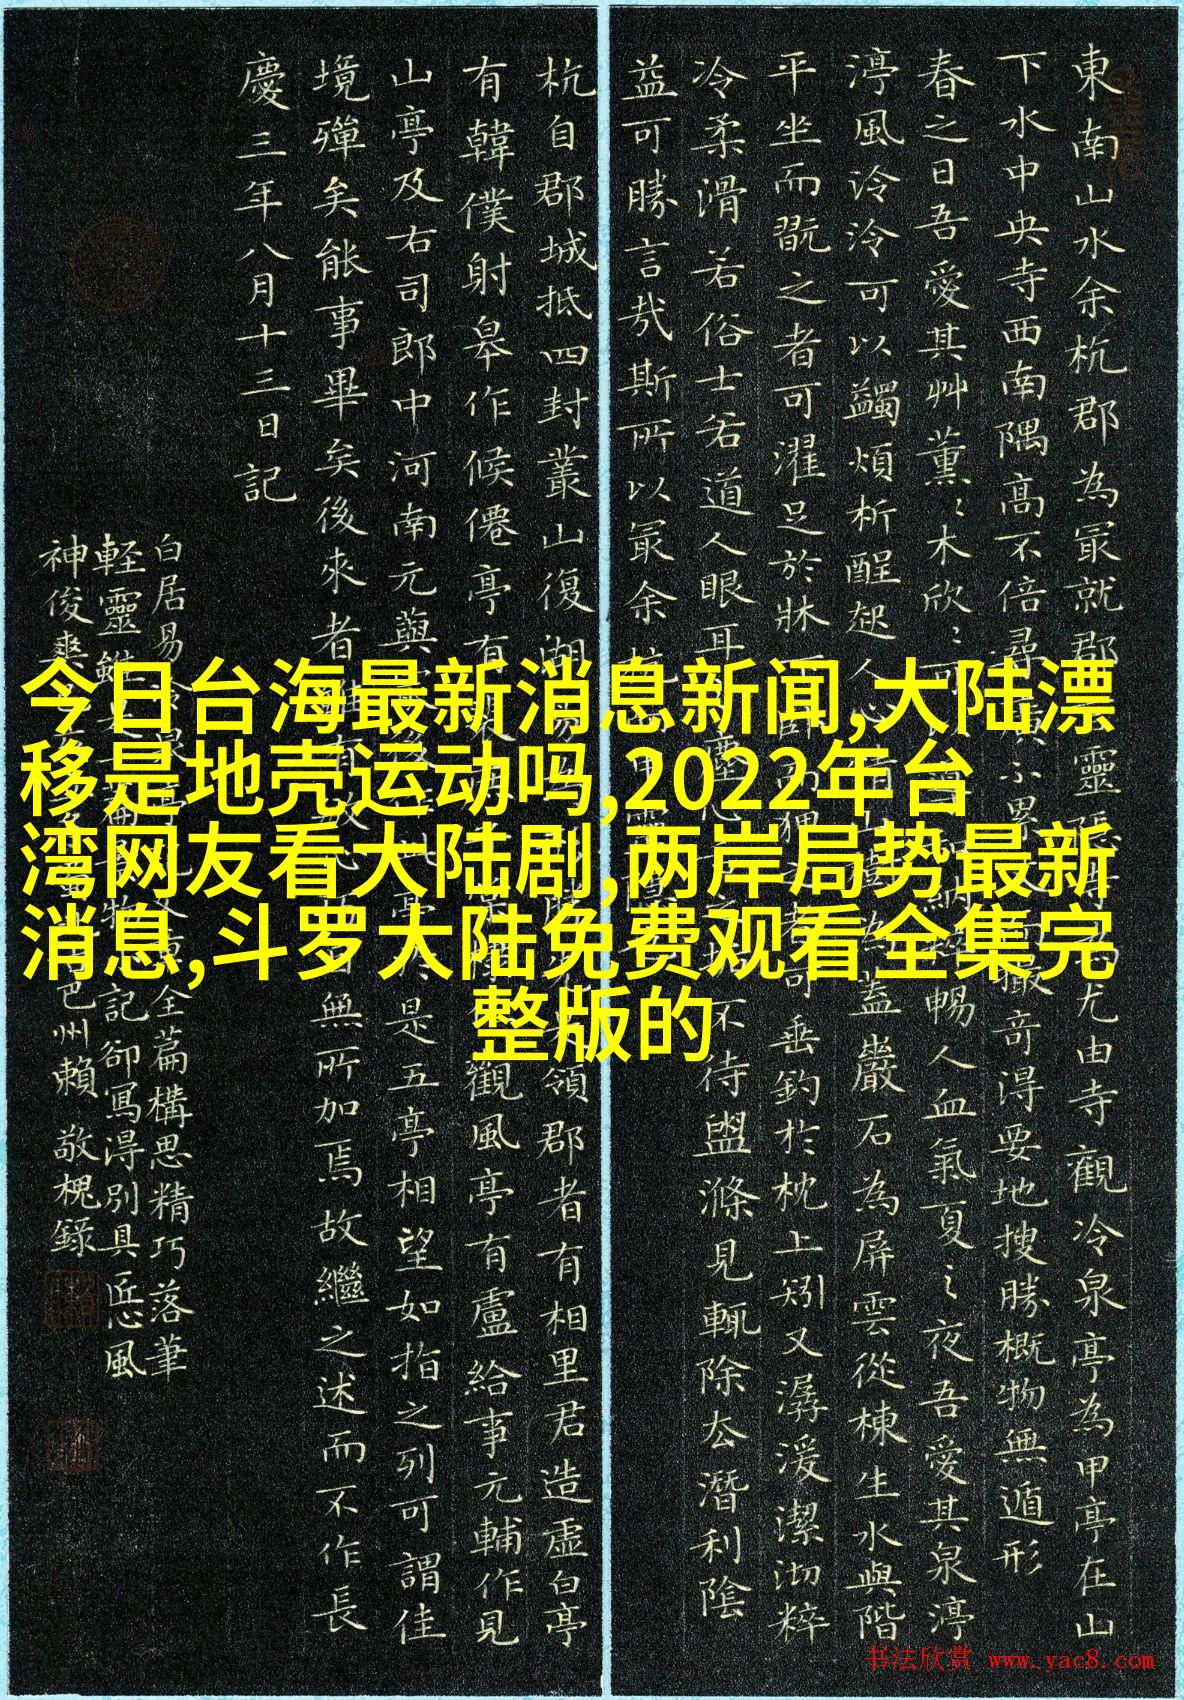 東南山水余杭郡為冣就郡 靈 為尤由寺觀冷泉亭為甲亭在山
下水中央寺西南隅髙不倍尋 不 撮奇得要地搜勝概物無遁形
春之日吾愛其艸薰〻木欣〻可 納 暢人血氣夏之夜吾愛其泉渟
渟風泠泠可以蠲煩析酲起人心 盖巖石為屏雲從棟生水與階
平坐而翫之者可濯足於牀下臥而狎之者可垂釣於枕上矧又潺湲潔沏粹
冷柔滑若俗士若道人眼耳 塵心 不待盥滌見輒除去潛利陰
益可勝言哉斯所以冣余杭
杭自郡城抵四封叢山復湖 領郡者有相里君造虛白亭
有韓僕射皋作候僊亭有 觀風亭有盧給事元輔作見
山亭及右司郎中河南元藇 亭 是五亭相望如指之列可謂佳
境殫矣能事畢矣後來者 無所加焉故繼之述而不作長
慶三年八月十三日記
白居易 全篇構思精巧落筆
輕靈 物 記卻寫得別具匠心風
神俊爽 巴州賴敬槐錄
今日台海最新消息新闻,大陆漂
移是地壳运动吗,2022年台
湾网友看大陆剧,两岸局势最新
消息,斗罗大陆免费观看全集完
整版的
书法欣赏 www.yac8.com